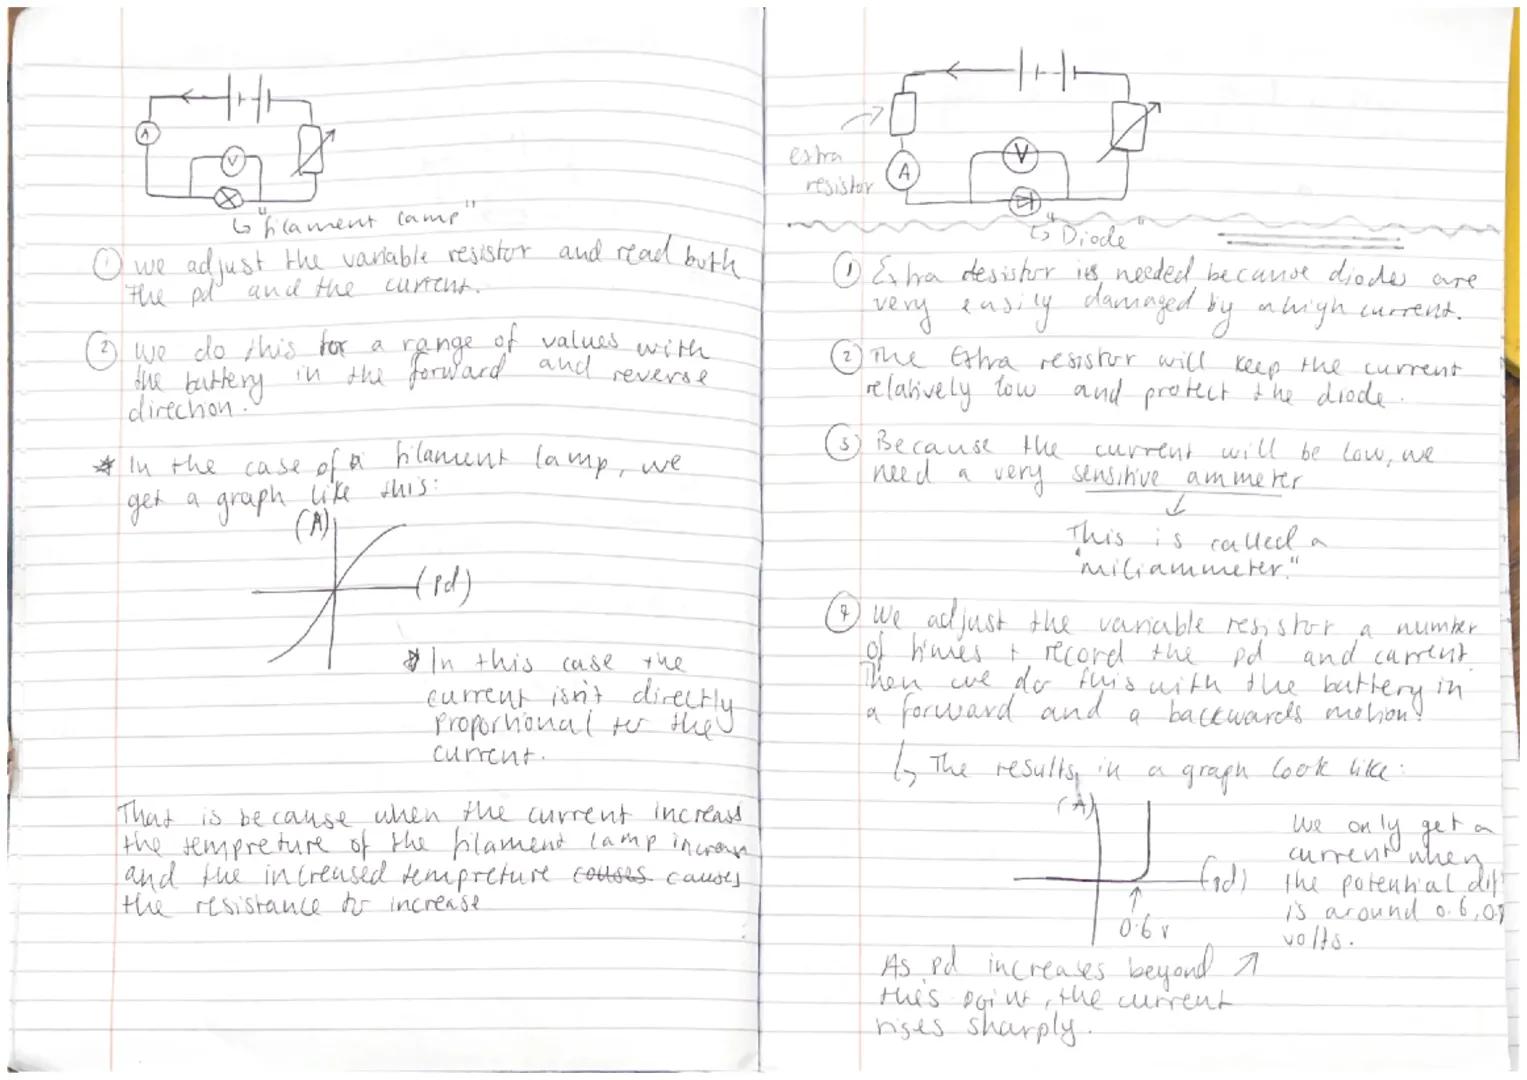 A
V
"filament lamp"
① we adjust the variable resistor and read both
the pd and the current.
② we do this for a range of values with
the battery in the forward and reverse
direction.
* In the case of a filament lamp, we
get a graph like this:
(A)
(pd)
* In this case the
current isn't directly
proportional to the
current.
That is because when the current increass
the tempreture of the filament lamp increase
and the increased tempreture couses causes
the resistance to increase
extra
resistor
A
V
"Diode"
① Extra resistor is needed because diodes are
very easily damaged by a high current.
② The Extra resistor will keep the current
relatively low and protect the diode.
③ Because the current will be low, we
need a very sensitive ammeter
This is called a
"miliammeter."
④ We adjust the variable resistor a number
of times + record the pd and current.
Then we do this with the battery in
a forward and a backwards motion.
The results, in a graph look like:
(A)
(pd)
0.6 v
We only get a
current when
the potential dif
is around 0.6, 0.7
volts.
As pd increases beyond
this point, the current
rises sharply.